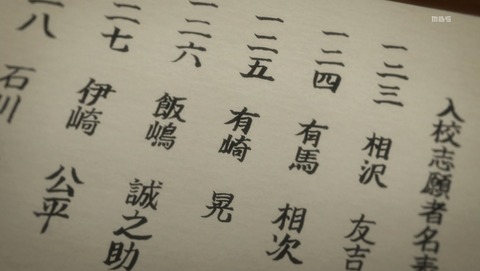 入校志願者名表
一二三 相沢 友吉
一二四 有馬 相次
一二五 有崎 晃
一二六 飯嶋 誠之助
二七 伊崎 公平
八 石川
MBS